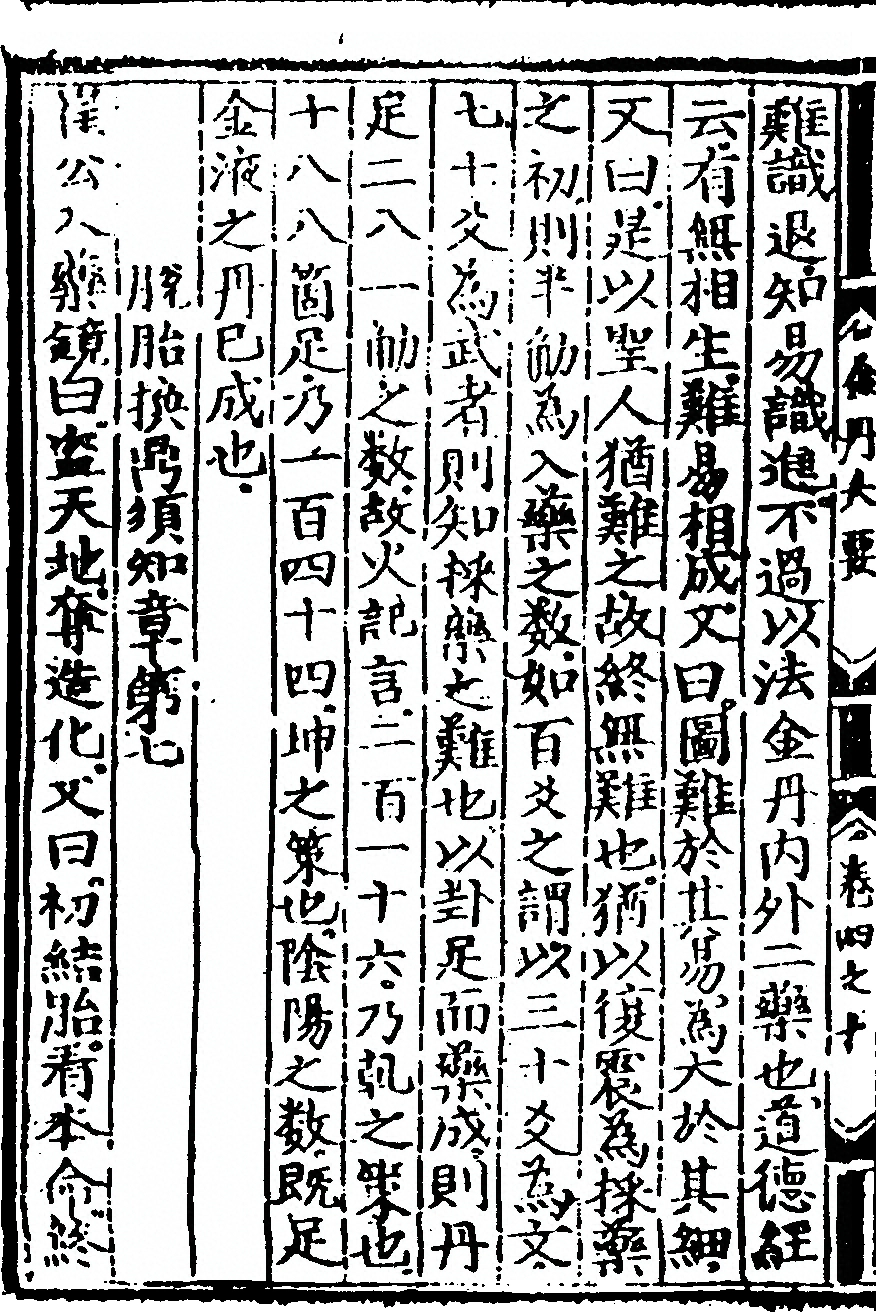 難識退知易識進不過以法金丹内外二藥也道德經
云有無相生難易相成又曰圖難於其易為大於其細
又曰是以聖人猶難之故終無難也猶以復震為採藥
之初則半觔為入藥之数如百爻之謂以三十爻為文
七十爻為武者則知採藥之難也以卦足而藥成則丹
足二八一觔之数故火記言二百一十六乃乹之策也
十八八箇足乃一百四十四坤之策也陰陽之数既足
金液之丹已成也
脱胎換鼎須知章第七
崔公入藥鏡曰盗天地奪造化又曰初結胎看本命終
金丹大要
卷四之十